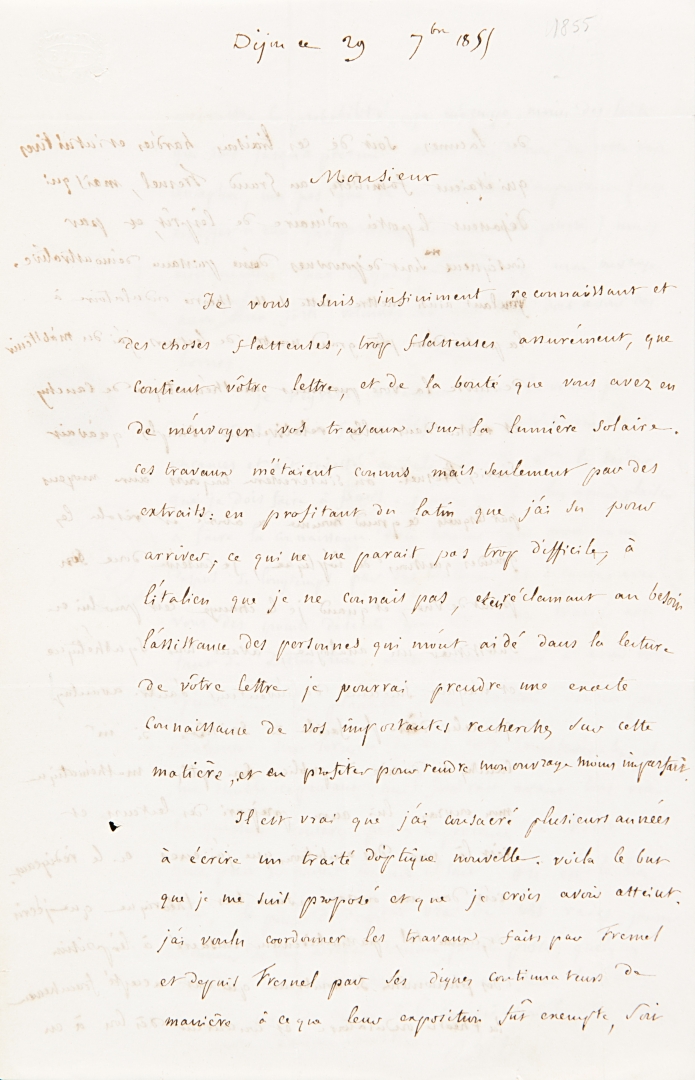 1855
Dijon ce 29 7bre 1855
Monsieur
Je vous suis infiniment reconnaissant et
des choses flatteuses, trop flatteuses assurément, que
contient vôtre lettre, et de la bonté que vous avez eu
de m'envoyer vos travaux sur la lumière solaire.
ces travaux m'étaient connus mais seulement par des
extraits: en profitant du latin que j'ai su pour
arriver, ce qui ne me parait pas trop difficile, à
l'italien que je ne connais pas, et en réclamant au besoin
l'assistance des personnes qui m'ont aidé dans la lecture
de vôtre lettre je pourrai prendre une exacte
connaissance de vos importantes recherches sur cette
matière, et en profiter pour rendre mon ouvrage moins imparfait.
Il est vrai que j'ai consacré plusieurs années
à écrire un traité d'optique nouvelle. voila le but
que je me suis proposé et que je crois avoir atteint.
j'ai voulu coordonner les travaux faits par Fresnel
et depuis Fresnel par ses dignes continuateurs de
manière à ce que leur exposition fût exempte, soit